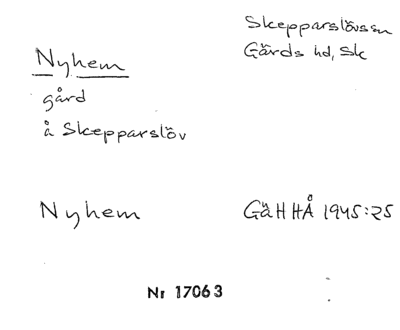 Skepparslövs sn
Gärds hd, Sk
Nyhem
gård
å Skepparslöv
Nyhem
GäHHÅ 1945:25
Nr 17063